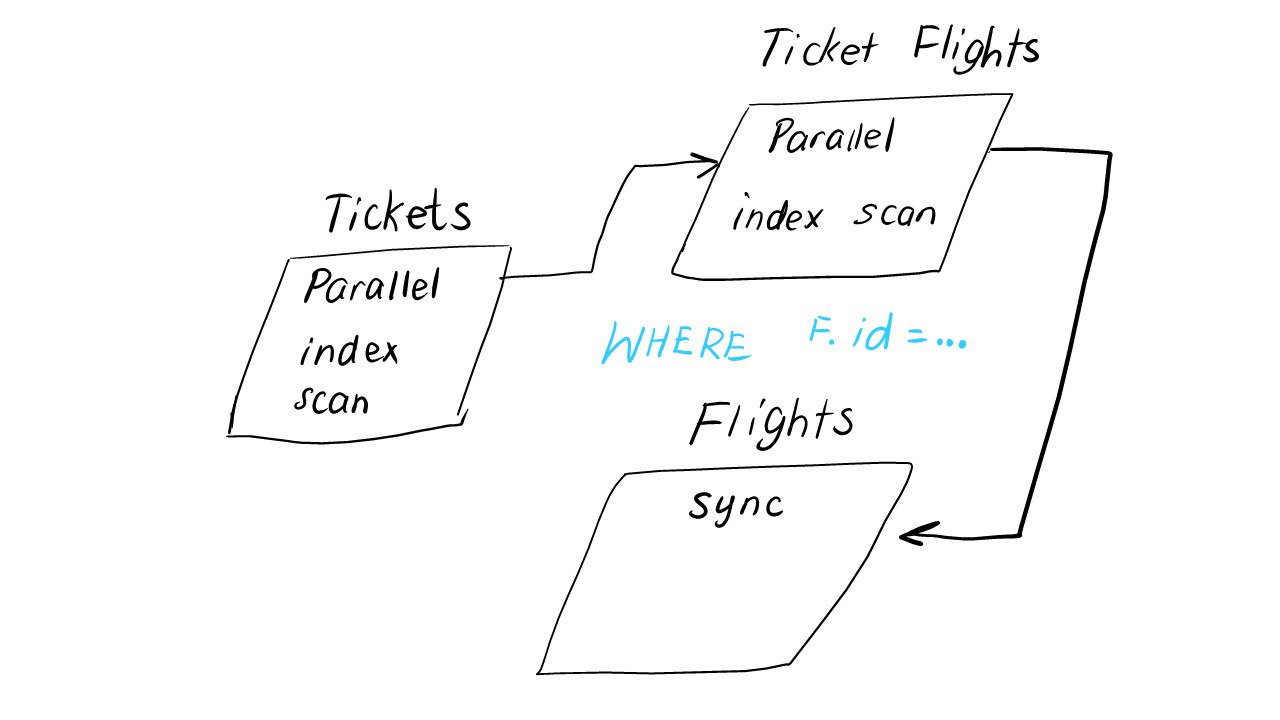 Ticket Flights
Parallel
index scan
Tickets
Parallel
index
scan
WHERE F. id = ...
Flights
sync